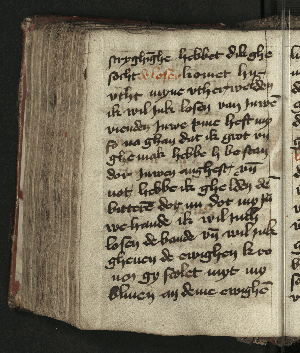 stryghighe hebbet dik ghe
socht komet hyr
vtht myne vtherwelden
ik wil juk losen van juwē
vienden juwe pine heft my
so na ghan dat ik grot vn
ghemak hebbe h bestan
dor juwen anghest vn̄
not hebbe ik ghelden de
bitterē dot
we hande ik wil juch
losen de bande vn̄ wil juk
gheuen de ewighen kro
nen gy scolet myt my
bliuen an deme ewighē